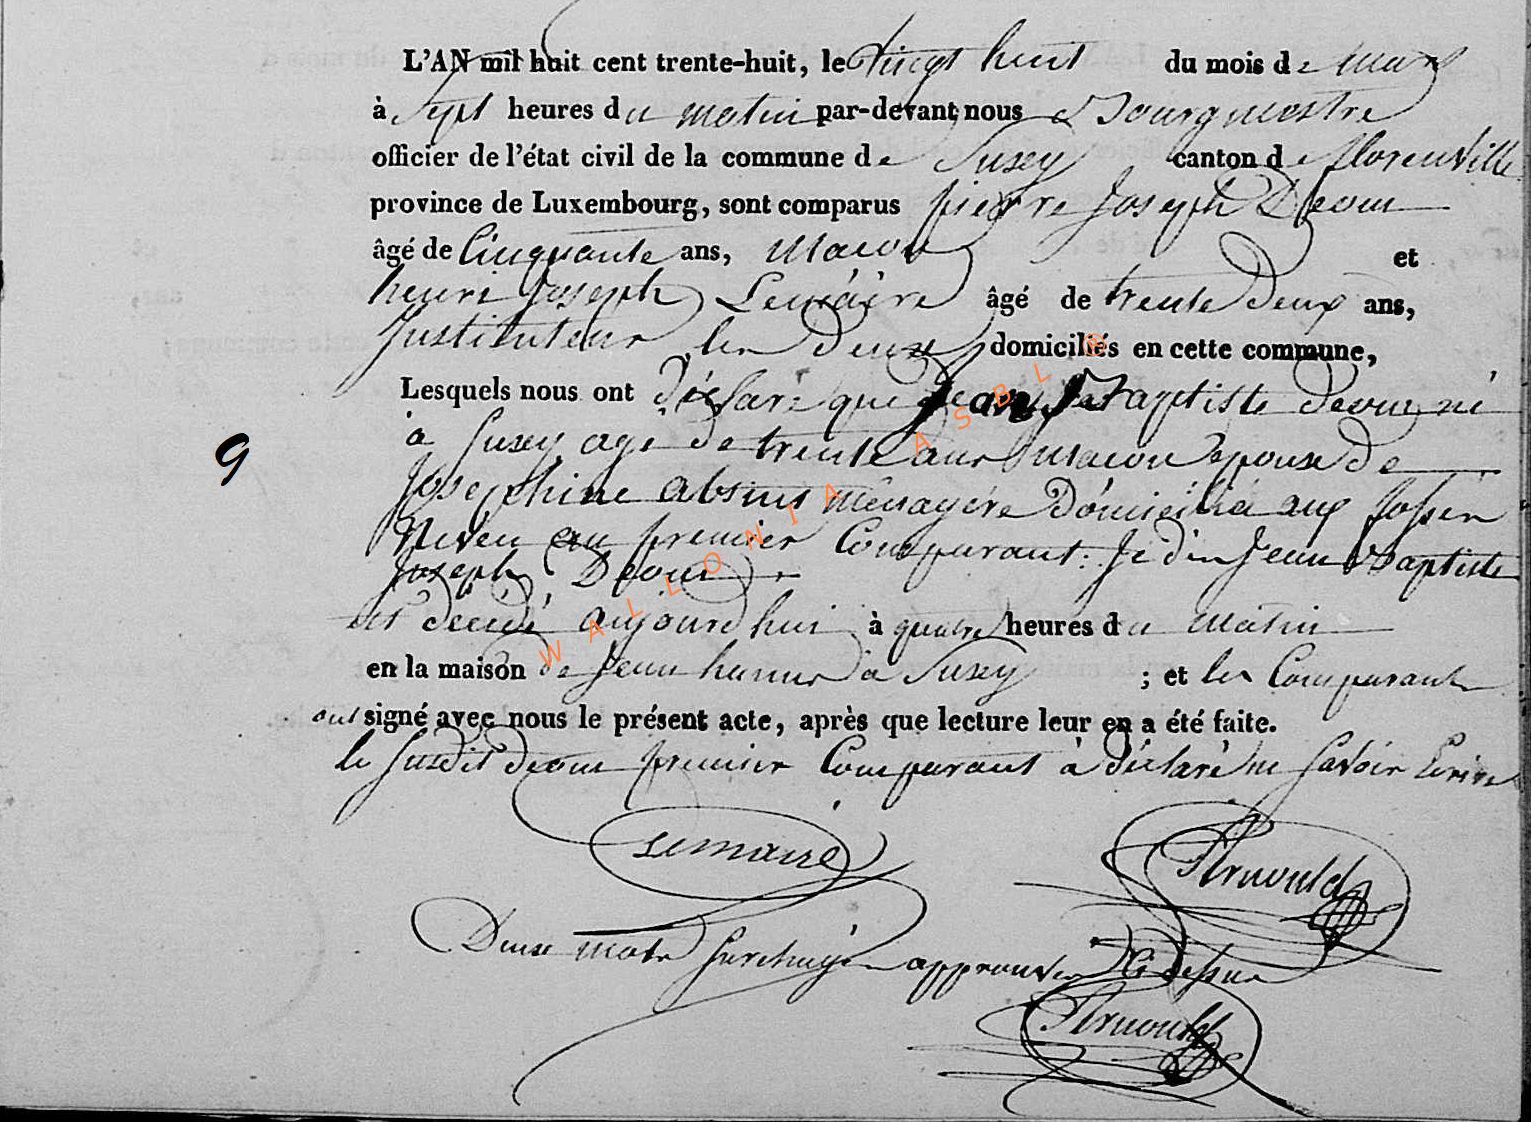 L'AN mil huit cent trente-huit, le vingt huit du mois de mars
à sept heures du matin par-devant nous Bourgmestre
officier de l'état civil de la commune de Suxey canton de florenville
province de Luxembourg, sont comparus pierre Joseph Deom
âgé de Cinquante ans, Macon et
henri Joseph Lemaire âgé de trente deux ans,
Instituteur les deux domiciliés en cette commune,
Lesquels nous ont déclaré que Jean Baptiste deom né
à Suxey age de trente ans macon epoux de
9
Josephine menagère Domicilié aux fossés
Neveu au premier Comparant. Je dis Jean Baptiste
Joseph Deom
est decedé aujourd'hui à quatre heures du matin
en la maison de Jean à Suxey ; et les Comparants
ont signé avec nous le présent acte, après que lecture leur en a été faite.
le susdit deom premier Comparant à déclaré ne savoir Ecrire
Lemaire Arnould
Deux mots surchargés approuvés ci dessus
Arnould
WALLONIA ASBL ®